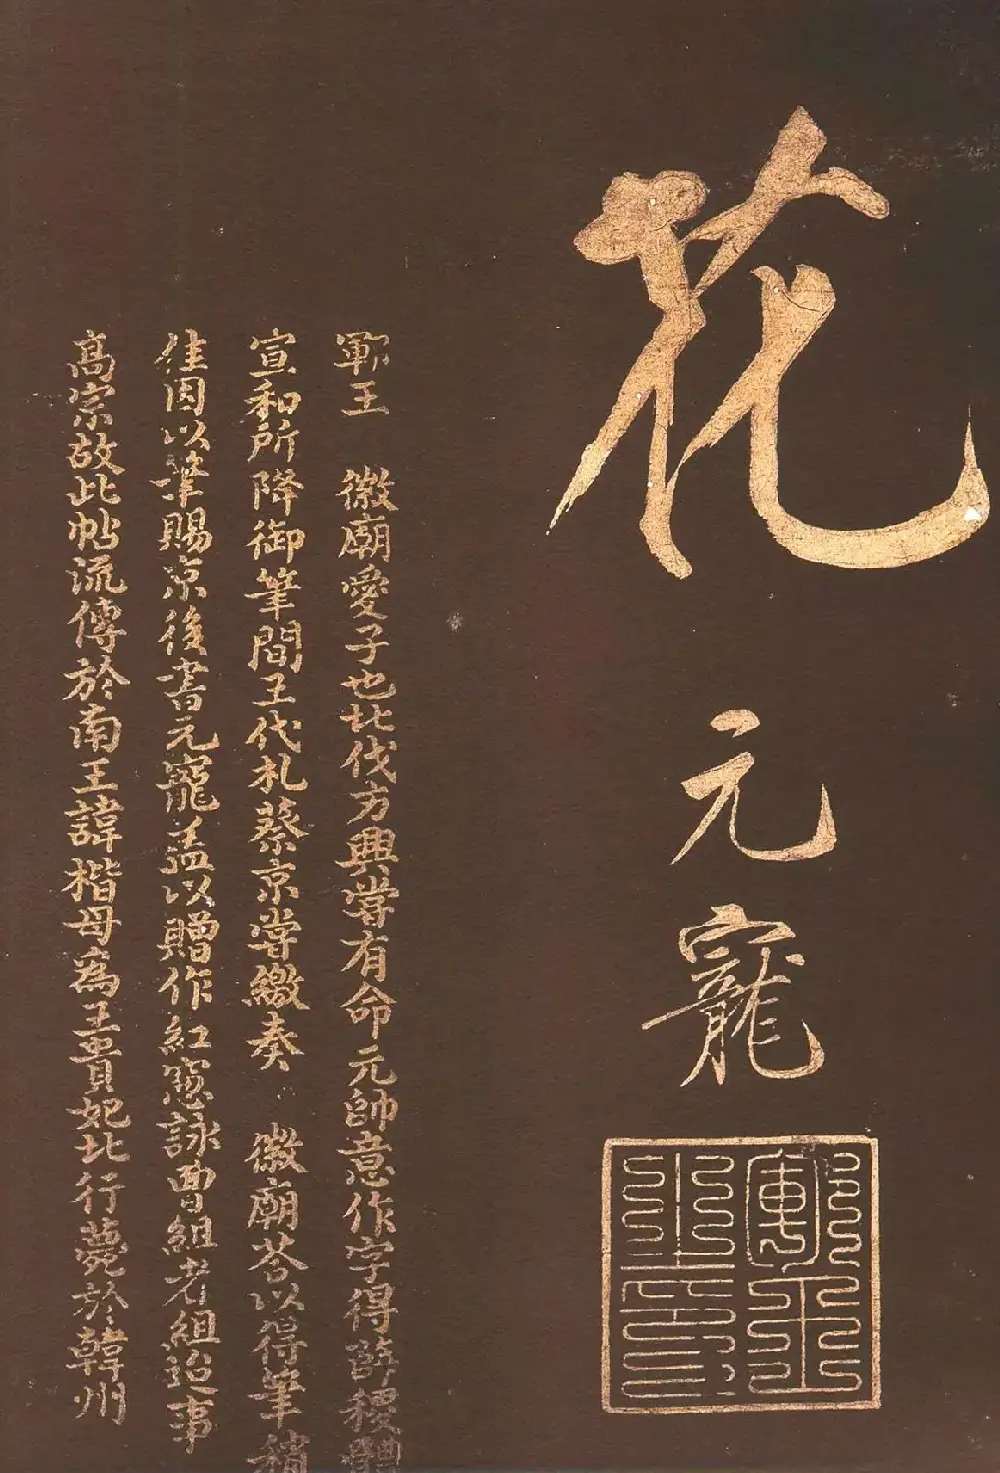 花
元寵
鄆王 徽廟愛子也北伐方興嘗有命元帥意作字得薛稷體
宣和所降御筆間王代札蔡京嘗繳奏 徽廟荅以得筆稍
佳因以筆賜京後書元寵盖以贈作紅窓詠曹組者組迨事
髙宗故此帖流傳於南王諱楷母為王貴妃北行薨於韓州